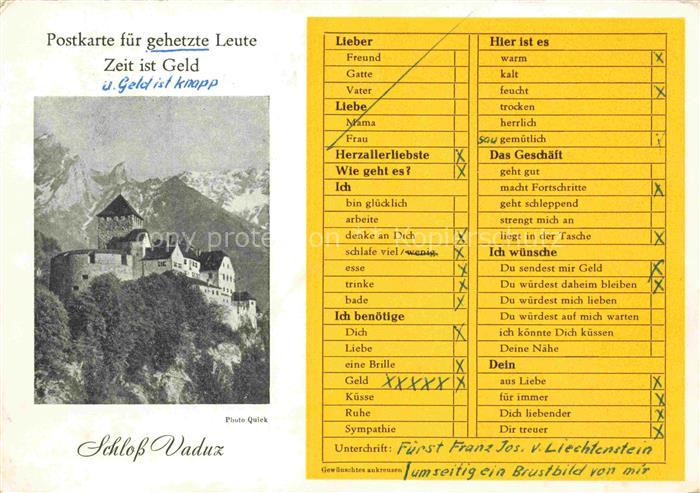 Postkarte für gehetzte Leute
Zeit ist Geld
u. Geld ist knapp
Photo Quick
Schloß Vaduz
Lieber
Freund
Gatte
Vater
Liebe
Mama
Frau
Herzallerliebste X
Wie geht es? X
Ich
bin glücklich
arbeite
denke an Dich X
schlafe viel/wenig. X
esse X
trinke X
bade X
Ich benötige
Dich X
Liebe
eine Brille X
Geld XXXXX X
Küsse
Ruhe
Sympathie
Hier ist es
warm X
kalt
feucht X
trocken
herrlich
sau gemütlich X
Das Geschäft
geht gut
macht Fortschritte X
geht schleppend
strengt mich an
liegt in der Tasche X
Ich wünsche
Du sendest mir Geld X
Du würdest daheim bleiben X
Du würdest mich lieben
Du würdest auf mich warten
ich könnte Dich küssen
Deine Nähe
Dein
aus Liebe X
für immer X
Dich liebender X
Dir treuer X
Unterchrift: Fürst Franz Jos. v. Liechtenstein
Gewünschtes ankreuzen umseitig ein Brustbild von mir
copy protection AK Kopierschutz